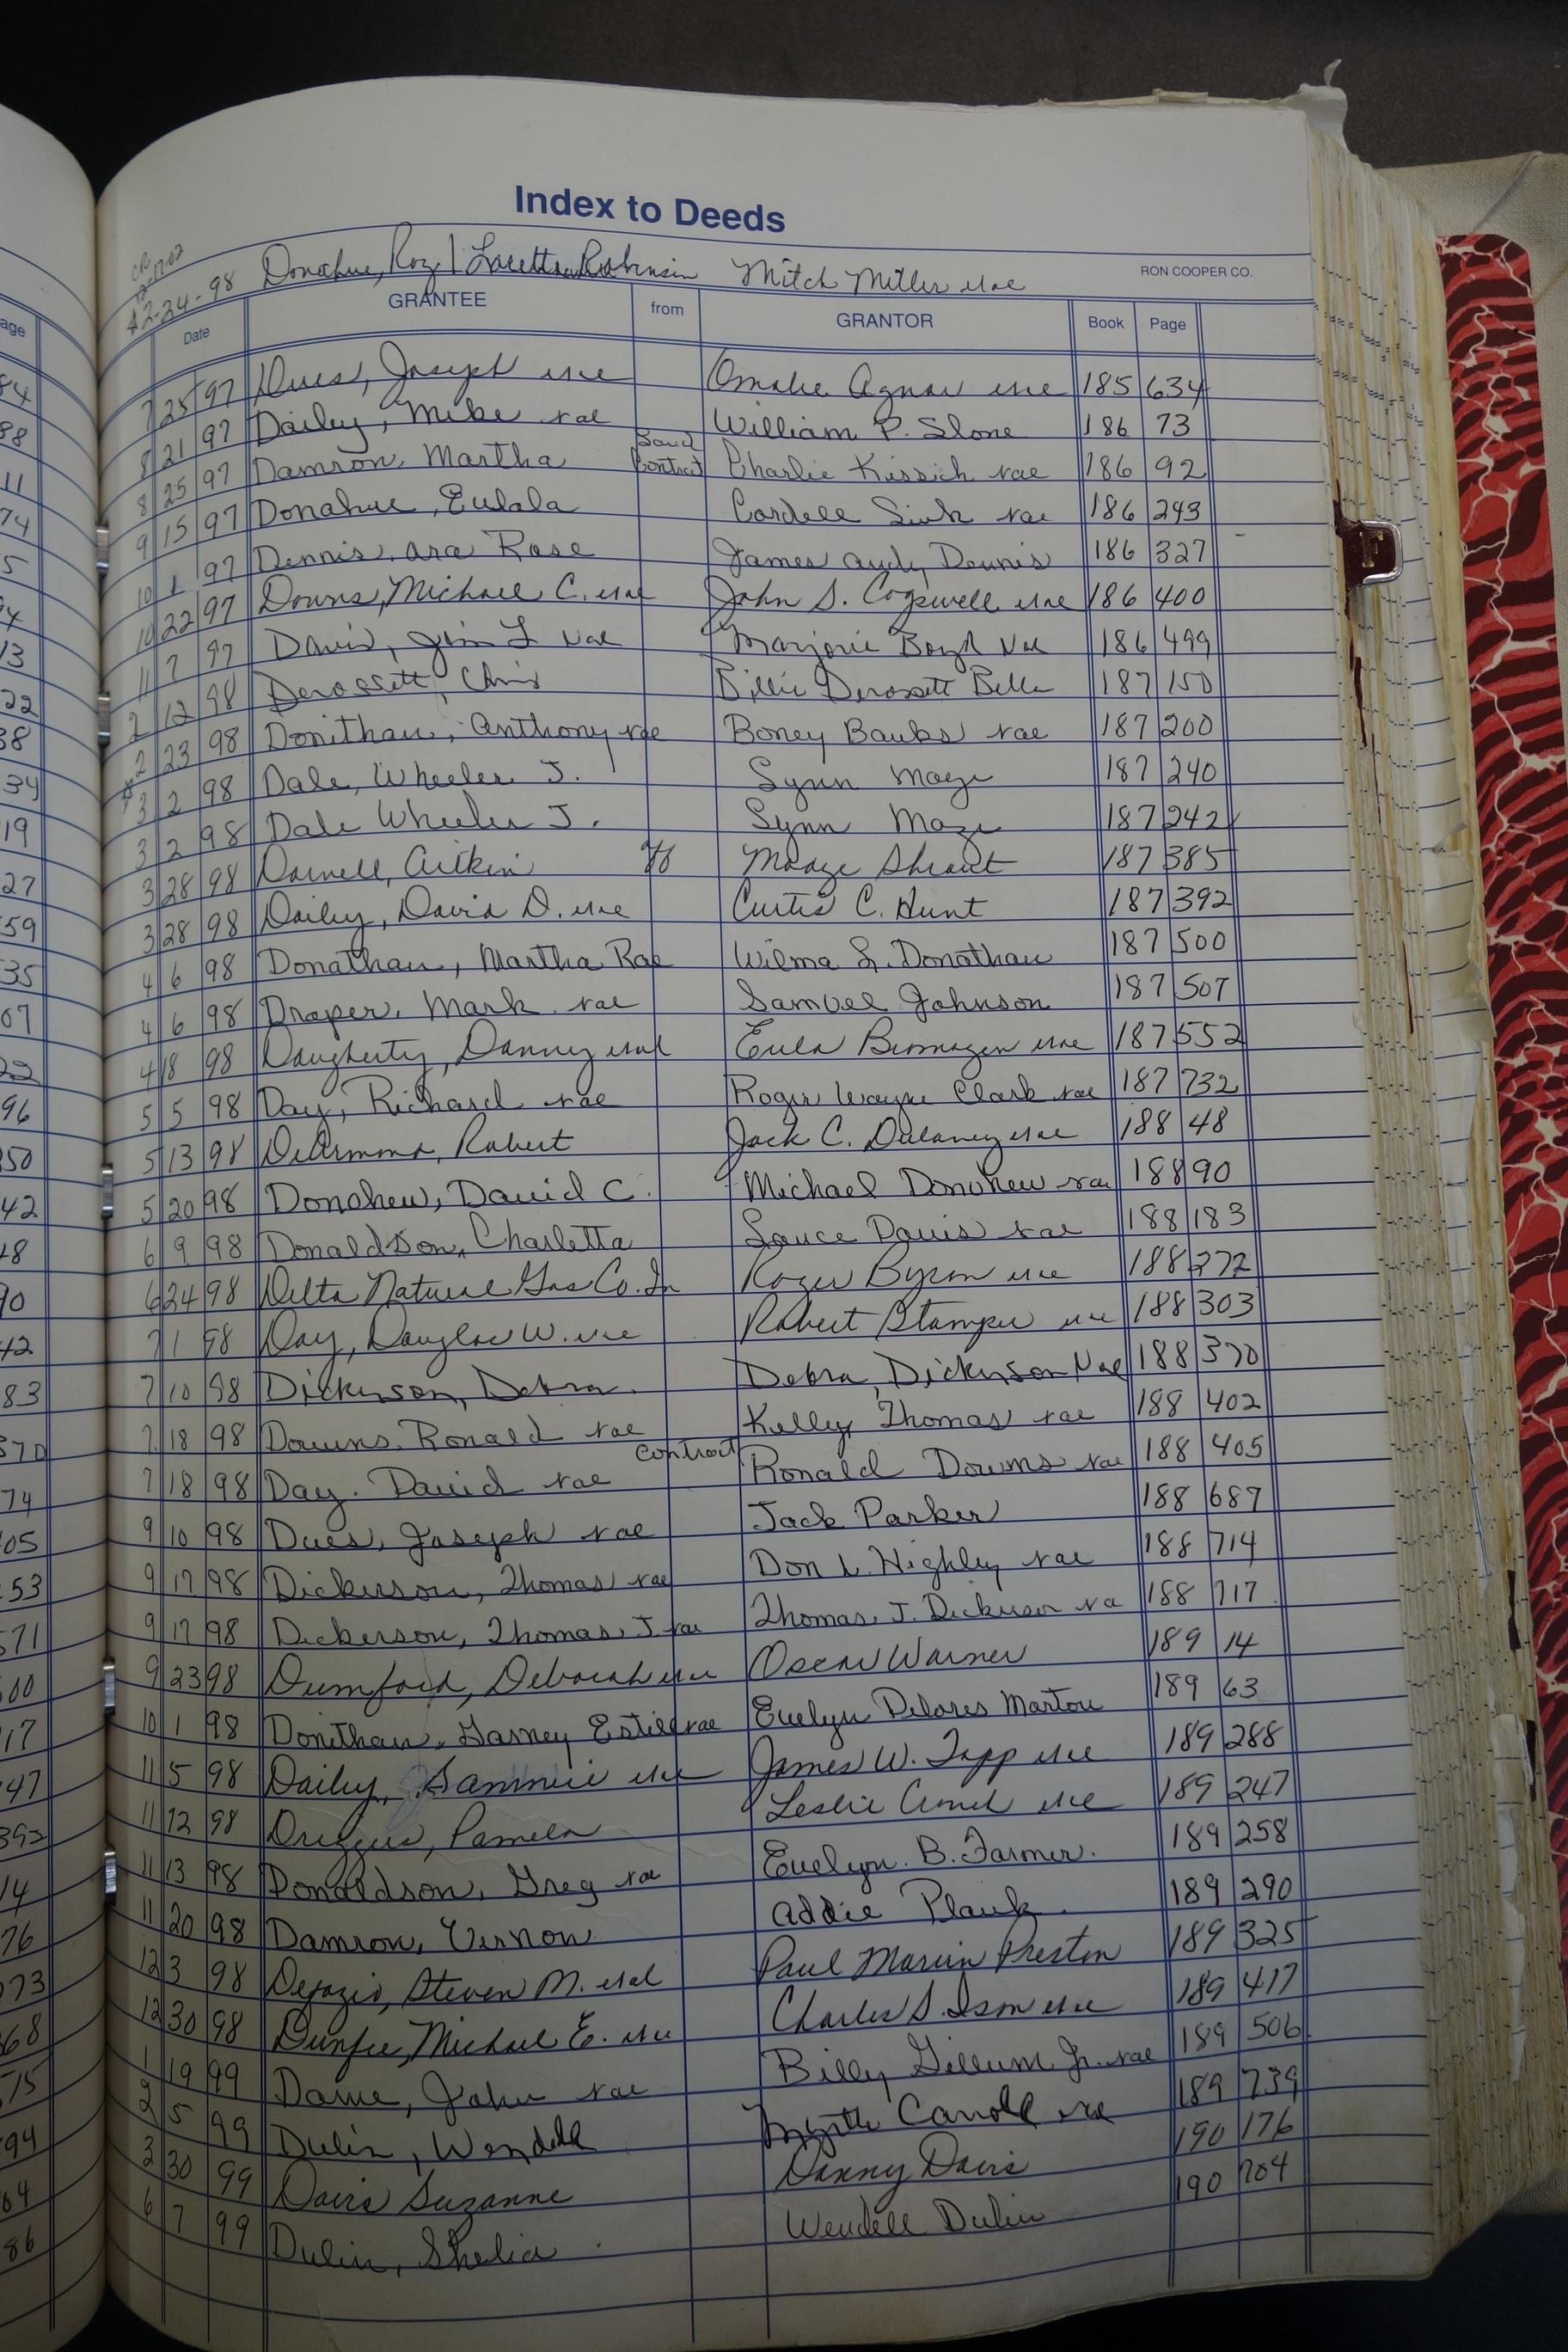 Index to Deeds
12-24-98 Donahue, Roy / Loretta Robinson Mitch Miller
RON COOPER CO.
Date GRANTEE from GRANTOR Book Page
7 25 97 Dues, Joseph Omalie Agnar 185 634
8 21 97 Dailey, Mike William P. Slone 186 73
8 25 97 Damron, Martha Contract Charlie Kissick 186 92
9 15 97 Donahue, Eulala Cordell Sink 186 243
10 1 97 Dennis, Ara Rose James Andy Dennis 186 327
10 22 97 Downs, Michael C. John S. Cogswell 186 400
11 7 97 Davis, Jim L Marjorie Boyd 186 499
2 12 98 Derossett, Chris Billie Derossett Belle 187 150
2 23 98 Donithan, Anthony Boney Banks 187 200
3 2 98 Dale, Wheeler J. Lynn Maze 187 240
3 2 98 Dale Wheeler J. Lynn Maze 187 242
3 28 98 Darnell, Aitkin Shrout 187 385
3 28 98 Dailey, David D. Curtis C. Hunt 187 392
4 6 98 Donathan, Martha Rae Wilma L. Donathan 187 500
4 6 98 Draper, Mark Samuel Johnson 187 507
4 18 98 Daugherty, Danny Eula Bromagen 187 552
5 5 98 Day, Richard Roger Wayne Clark 187 732
5 13 98 DeArmond, Robert Jack C. Dulaney 188 48
5 20 98 Donohew, David C. Michael Donohew 188 90
6 9 98 Donaldson, Charletta Davis 188 183
6 24 98 Delta Natural Gas Co. In Roger Byron 188 272
7 1 98 Day, Douglas W. Robert Stamper 188 303
7 10 98 Dickerson, Debra Debra Dickerson 188 370
7 18 98 Downs, Ronald Kelly, Thomas 188 402
7 18 98 Day, David contract Ronald Downs 188 405
9 10 98 Dues, Joseph Jack Parker 188 687
9 17 98 Dickerson, Thomas Don L. Highley 188 714
9 17 98 Dickerson, Thomas J. Thomas J. Dickerson 188 717
9 23 98 Dumford, Deborah Oscar Warner 189 14
10 1 98 Donithan, Garney Estill Evelyn Delores Marton 189 63
11 5 98 Dailey, Sammie James W. Tapp 189 288
11 12 98 Driggus, Pamela Leslie 189 247
11 13 98 Donaldson, Greg Evelyn B. Farmer 189 258
11 20 98 Damron, Vernon Addie Plank 189 290
12 3 98 Defazio, Steven M. Paul Marvin Preston 189 325
12 30 98 Dunfee, Michael E. Charles S. Ison 189 417
1 19 99 Dame, John Billy Gillum Jr. 189 506
2 5 99 Dulin, Wendell Myrtle Carroll 189 739
3 30 99 Davis Suzanne Danny Davis 190 176
6 7 99 Dulin, Shelia Wendell Dulin 190 704